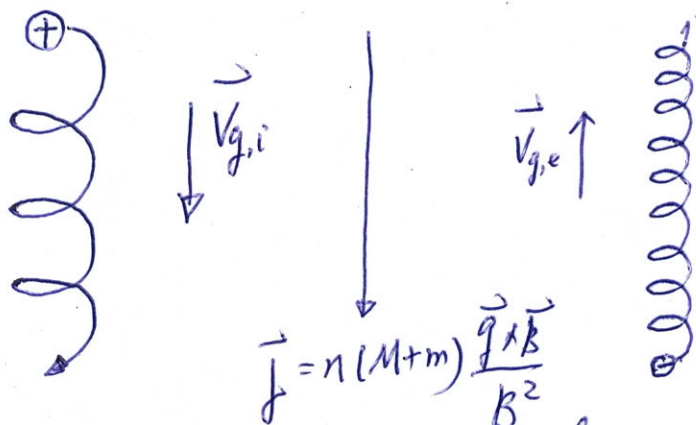 ⊕
V⃗g,i
V⃗g,e
⊖
j⃗ = n(M+m) g⃗×B⃗ / B²